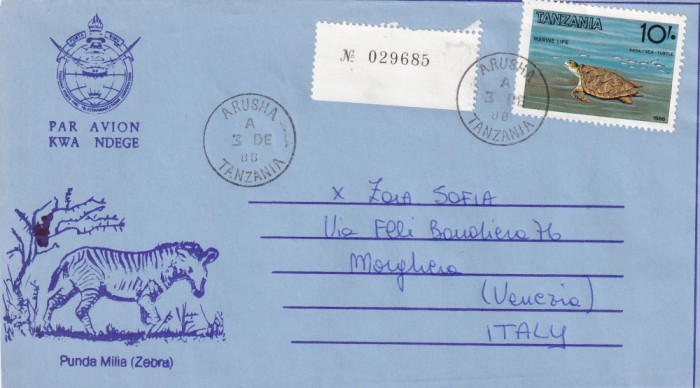 PAR AVION
KWA NDEGE
№ 029685
TANZANIA
10/-
MARINE LIFE
SEA-TURTLE
1986
ARUSHA
A
3 DE
88
TANZANIA
ARUSHA
A
3 DE
88
TANZANIA
x Zoia SOFIA
Via Flli Bandiera 76
Marghera
(Venezia)
ITALY
Punda Milia (Zebra)